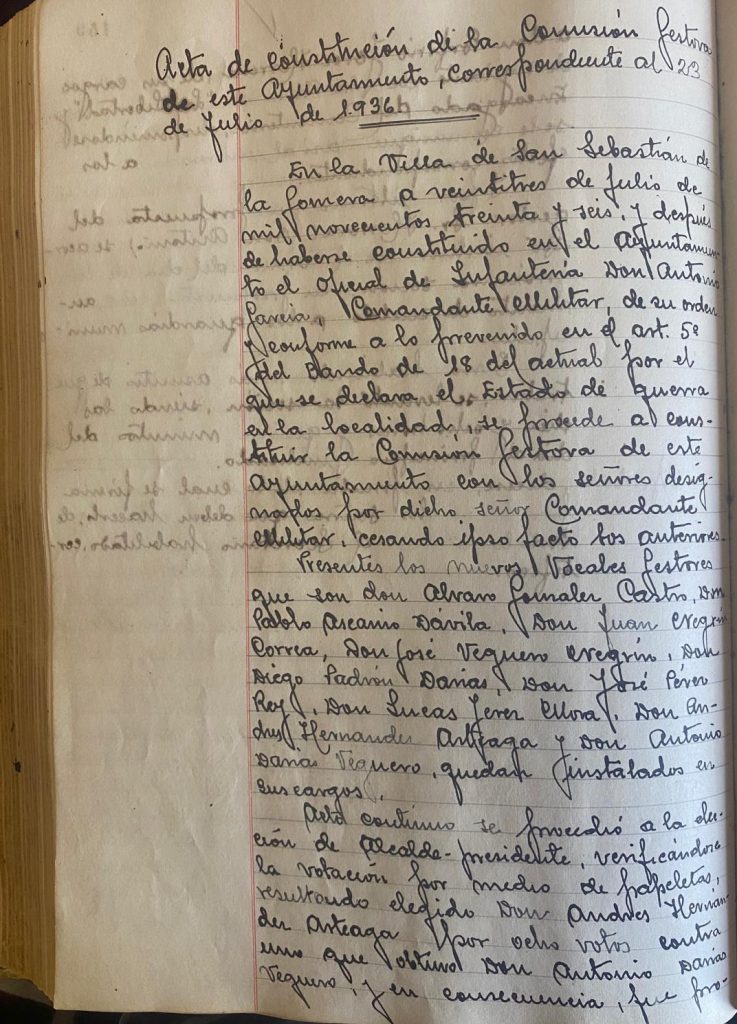 Acta de constitución de la Comisión Gestora
de este Ayuntamiento, correspondiente al 23
de Julio de 1.936.
En la Villa de San Sebastián de
la Gomera a veintitres de Julio de
mil novecientos treinta y seis, y después
de haberse constituido en el Ayuntamien-
to el Oficial de Infantería Don Antonio
García, Comandante Militar, de su orden
y conforme a lo prevenido en el art. 5º
del Bando de 18 del actual por el
que se declara el Estado de guerra
en la localidad, se procede a cons-
tituir la Comisión Gestora de este
Ayuntamiento con los señores desig-
nados por dicho señor Comandante
Militar, cesando ipso facto los anteriores.
Presentes los nuevos Vocales Gestores
que son don Alvaro Gonzalez Castro, Don
Pablo Ascanio Dávila, Don Juan Negrín
Correa, Don José Veguero Negrín, Don
Diego Padrón Darias, Don José Pérez
Rey, Don Lucas Jerez Mora, Don An-
dres Hernandez Arteaga y Don Antonio
Darias Veguero, quedan instalados en
sus cargos.
Acto continuo se procedió a la elec-
ción de Alcalde-presidente, verificándose
la votación por medio de papeletas,
resultando elegido Don Andres Hernan-
dez Arteaga por ocho votos contra
uno que obtuvo Don Antonio Darias
Veguero, y en consecuencia, fue pro-